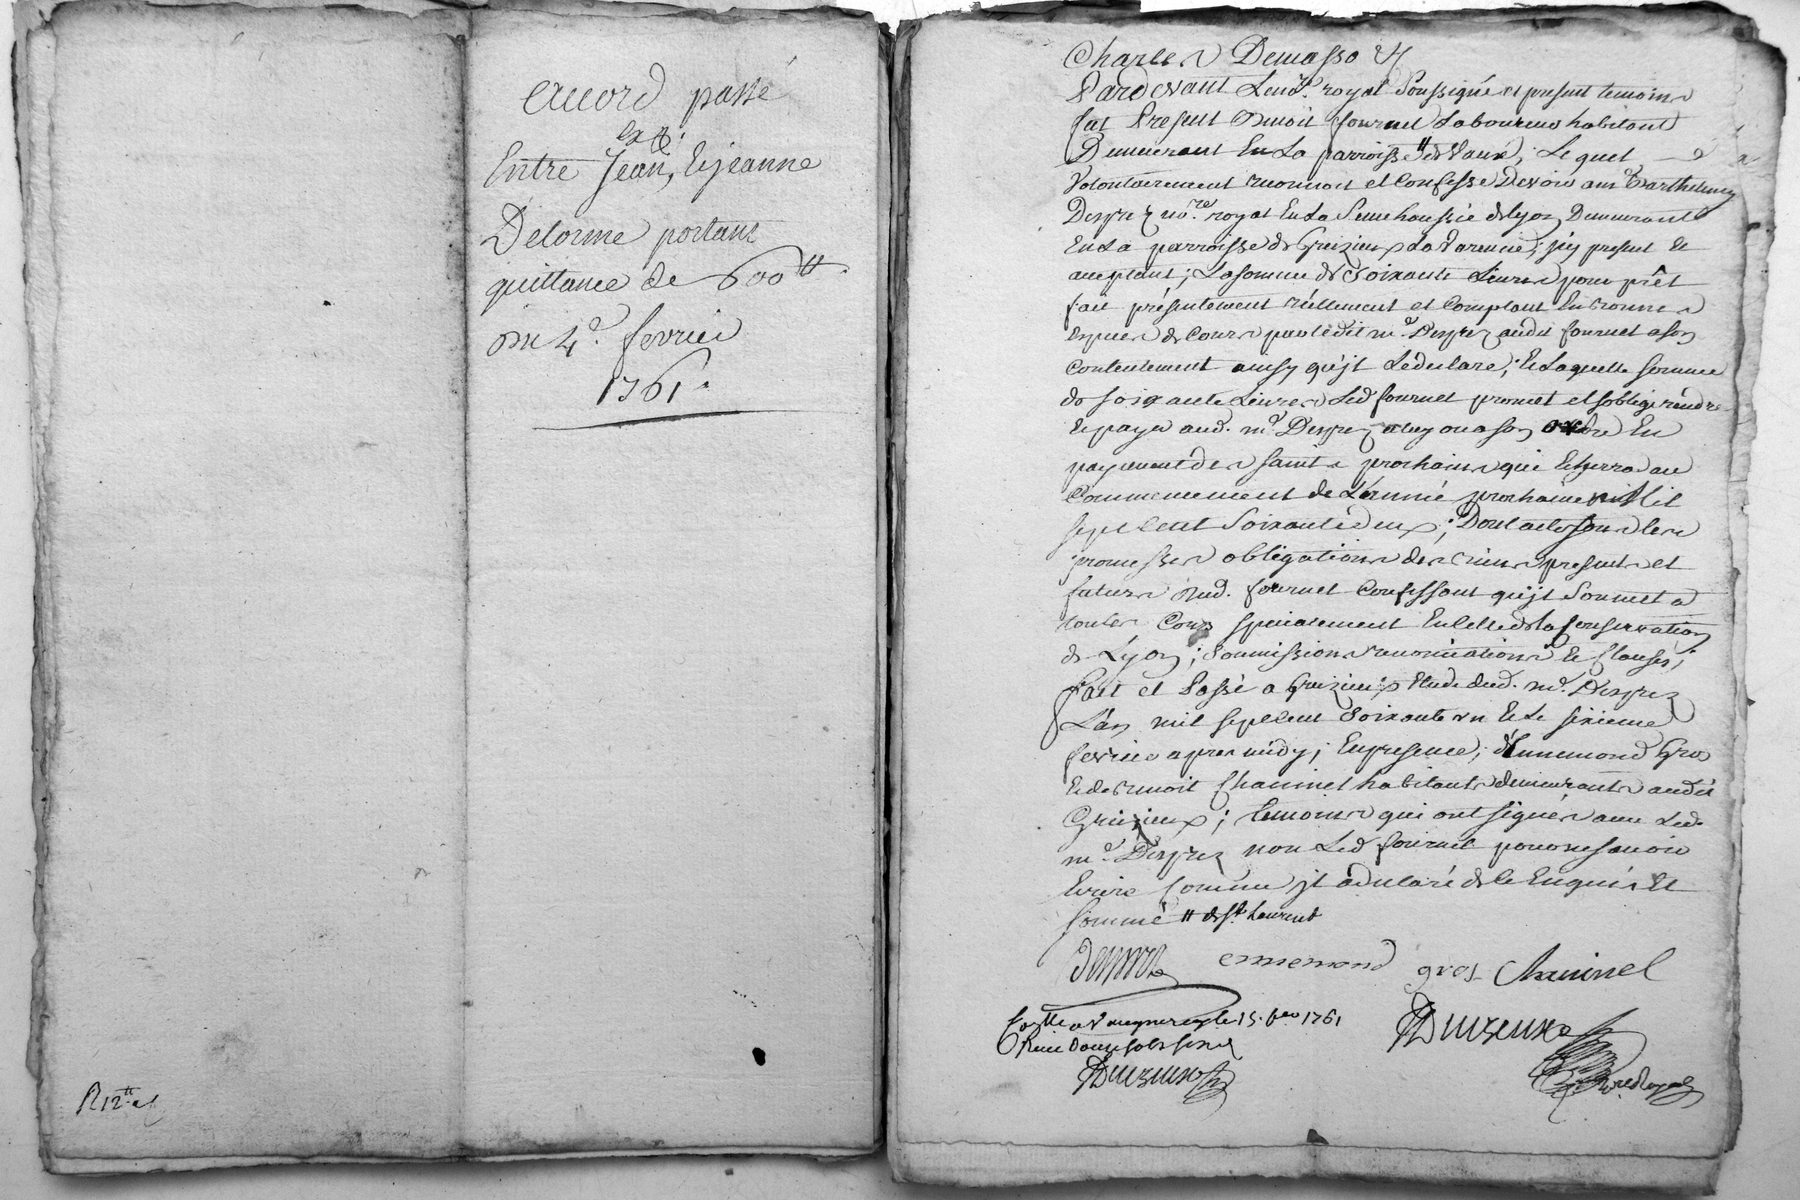 accord passé
Entre Jean, & jeanne
Delorme portant
quittance de 600tt.
Du 4e. fevrier
1761.
R 12tt
Charles Demasso &
Pardevant Le nore. royal Soussigné et present temoins
fut Present Benoit fournel Laboureur habitant
Demeurant En La parroisse tt de Vaux, Lequel
Volontairement reconnoit et Confesse Devoir a me Barthelemy
Desprez nore royal En La Senechaussée de Lyon Demeurant
En La parroisse de Grezieu La Varenne; jcy present &
aceptant; La somme de Soixante Livres pour prêt
fait présentement réellement et Comptant En bonnes
Especes de Cours par ledit me. Desprez audit fournel a son
Contentement ainsy qu'jl Le declare; & Laquelle somme
de soixante Livres Led. fournel promet et s'oblige rendre
& payer aud. me Desprez a luy ou a son ordre En
payement des saints prochains qui Echerra au
Commencement de L'année prochaine Mil
sept Cent Soixante deux; Dont acte sous les
promesses obligations des biens presents et
futurs dud. fournel Confessant qu'jl Soumet a
toutes Cours specialement En Celle de La Conservation
de Lyon; soumissions renonciations & Clauses;
fait et Passé a Grezieu Etude dud. me. Desprez
L'an mil sept Cent Soixante un & Le sixieme
fevrier apres midy; En presence; d'Ennemond Gros
& de Benoit Chaninel habitants demeurants audit
Grezieux; temoins qui ont signés avec Led.
me. Desprez non Led fournel pour ne savoir
Ecrire Comme jl a declaré de Ce Enquis &
sommé tt de St. Laurent
Desprez ennemond gros Chaninel
a Vaugneray le 15. feo 1761
Reçu douze sols
nore Royal